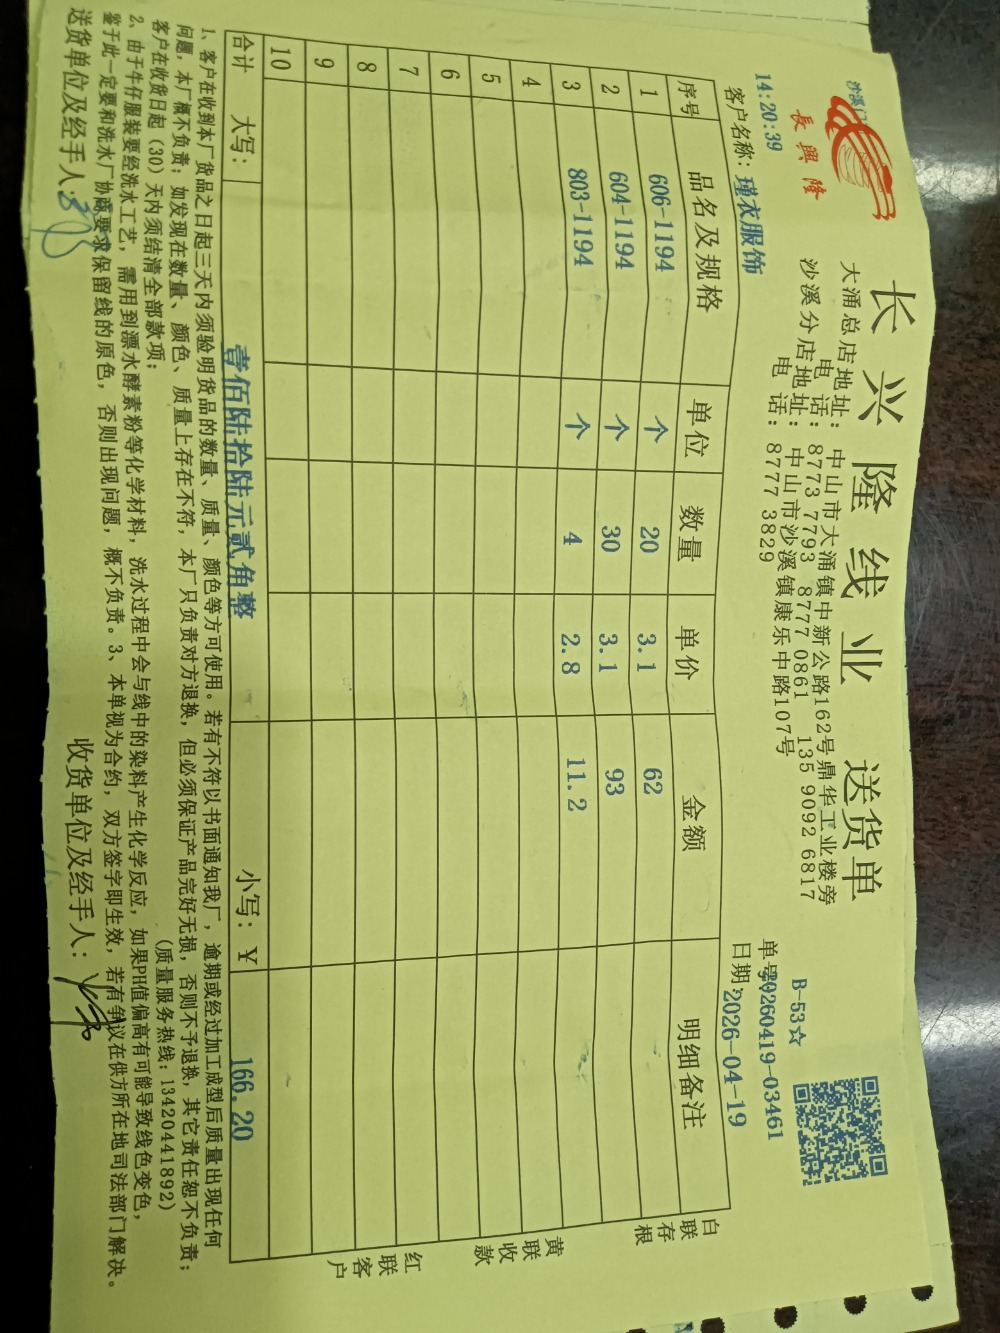 沙溪门
長興隆
长兴隆线业 送货单
大涌总店地址: 中山市大涌镇中新公路162号鼎华工业楼旁
电 话: 8773 7793 8777 0861 135 9092 6817
沙溪分店地址: 中山市沙溪镇康乐中路107号
电 话: 8777 3829
B-53☆
14:20:39
单号:20260419-03461
客户名称: 瑾衣服饰
日期:2026-04-19
序号 品名及规格 单位 数量 单价 金额 明细备注
1 606-1194 个 20 3.1 62
2 604-1194 个 30 3.1 93
3 803-1194 个 4 2.8 11.2
4
5
6
7
8
9
10
合计 大写: 壹佰陆拾陆元贰角整 小写: ¥ 166.20
白联存根
黄联收款
红联客户
1、客户在收到本厂货品之日起三天内须验明货品的数量、质量、颜色等方可使用。若有不符以书面通知我厂,逾期或经过加工成型后质量出现任何
问题,本厂概不负责;如发现在数量、颜色、质量上存在不符,本厂只负责对方退换,但必须保证产品完好无损,否则不予退换,其它责任恕不负责;
客户在收货日起(30)天内须结清全部款项; (质量服务热线:13420441892)
2、由于牛仔服装要经洗水工艺,需用到漂水酵素粉等化学材料,洗水过程中会与线中的染料产生化学反应,如果PH值偏高有可能导致线色变色,
鉴于此一定要和洗水厂协商要求保留线的原色,否则出现问题,概不负责。3、本单视为合约,双方签字即生效,若有争议在供方所在地司法部门解决。
送货单位及经手人: 收货单位及经手人: